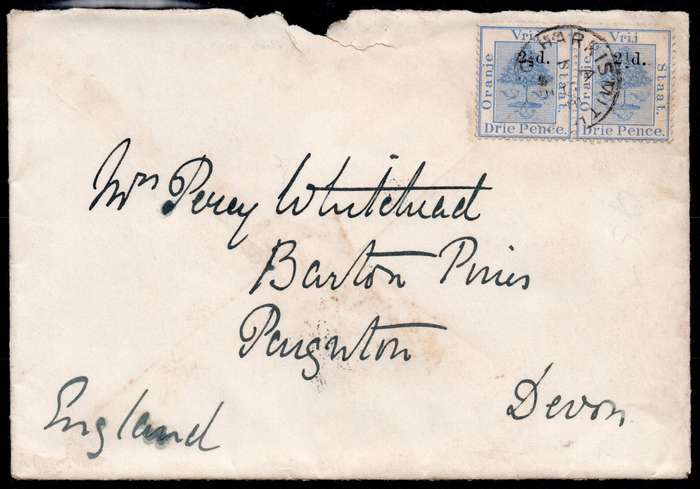 Vrij Vrij
Oranie Staat. Oranie Staat.
2½d. 2½d.
Drie Pence. Drie Pence.
HARRISMITH
Mrs Percy Whitehead
Barton Pines
Paignton
Devon
England